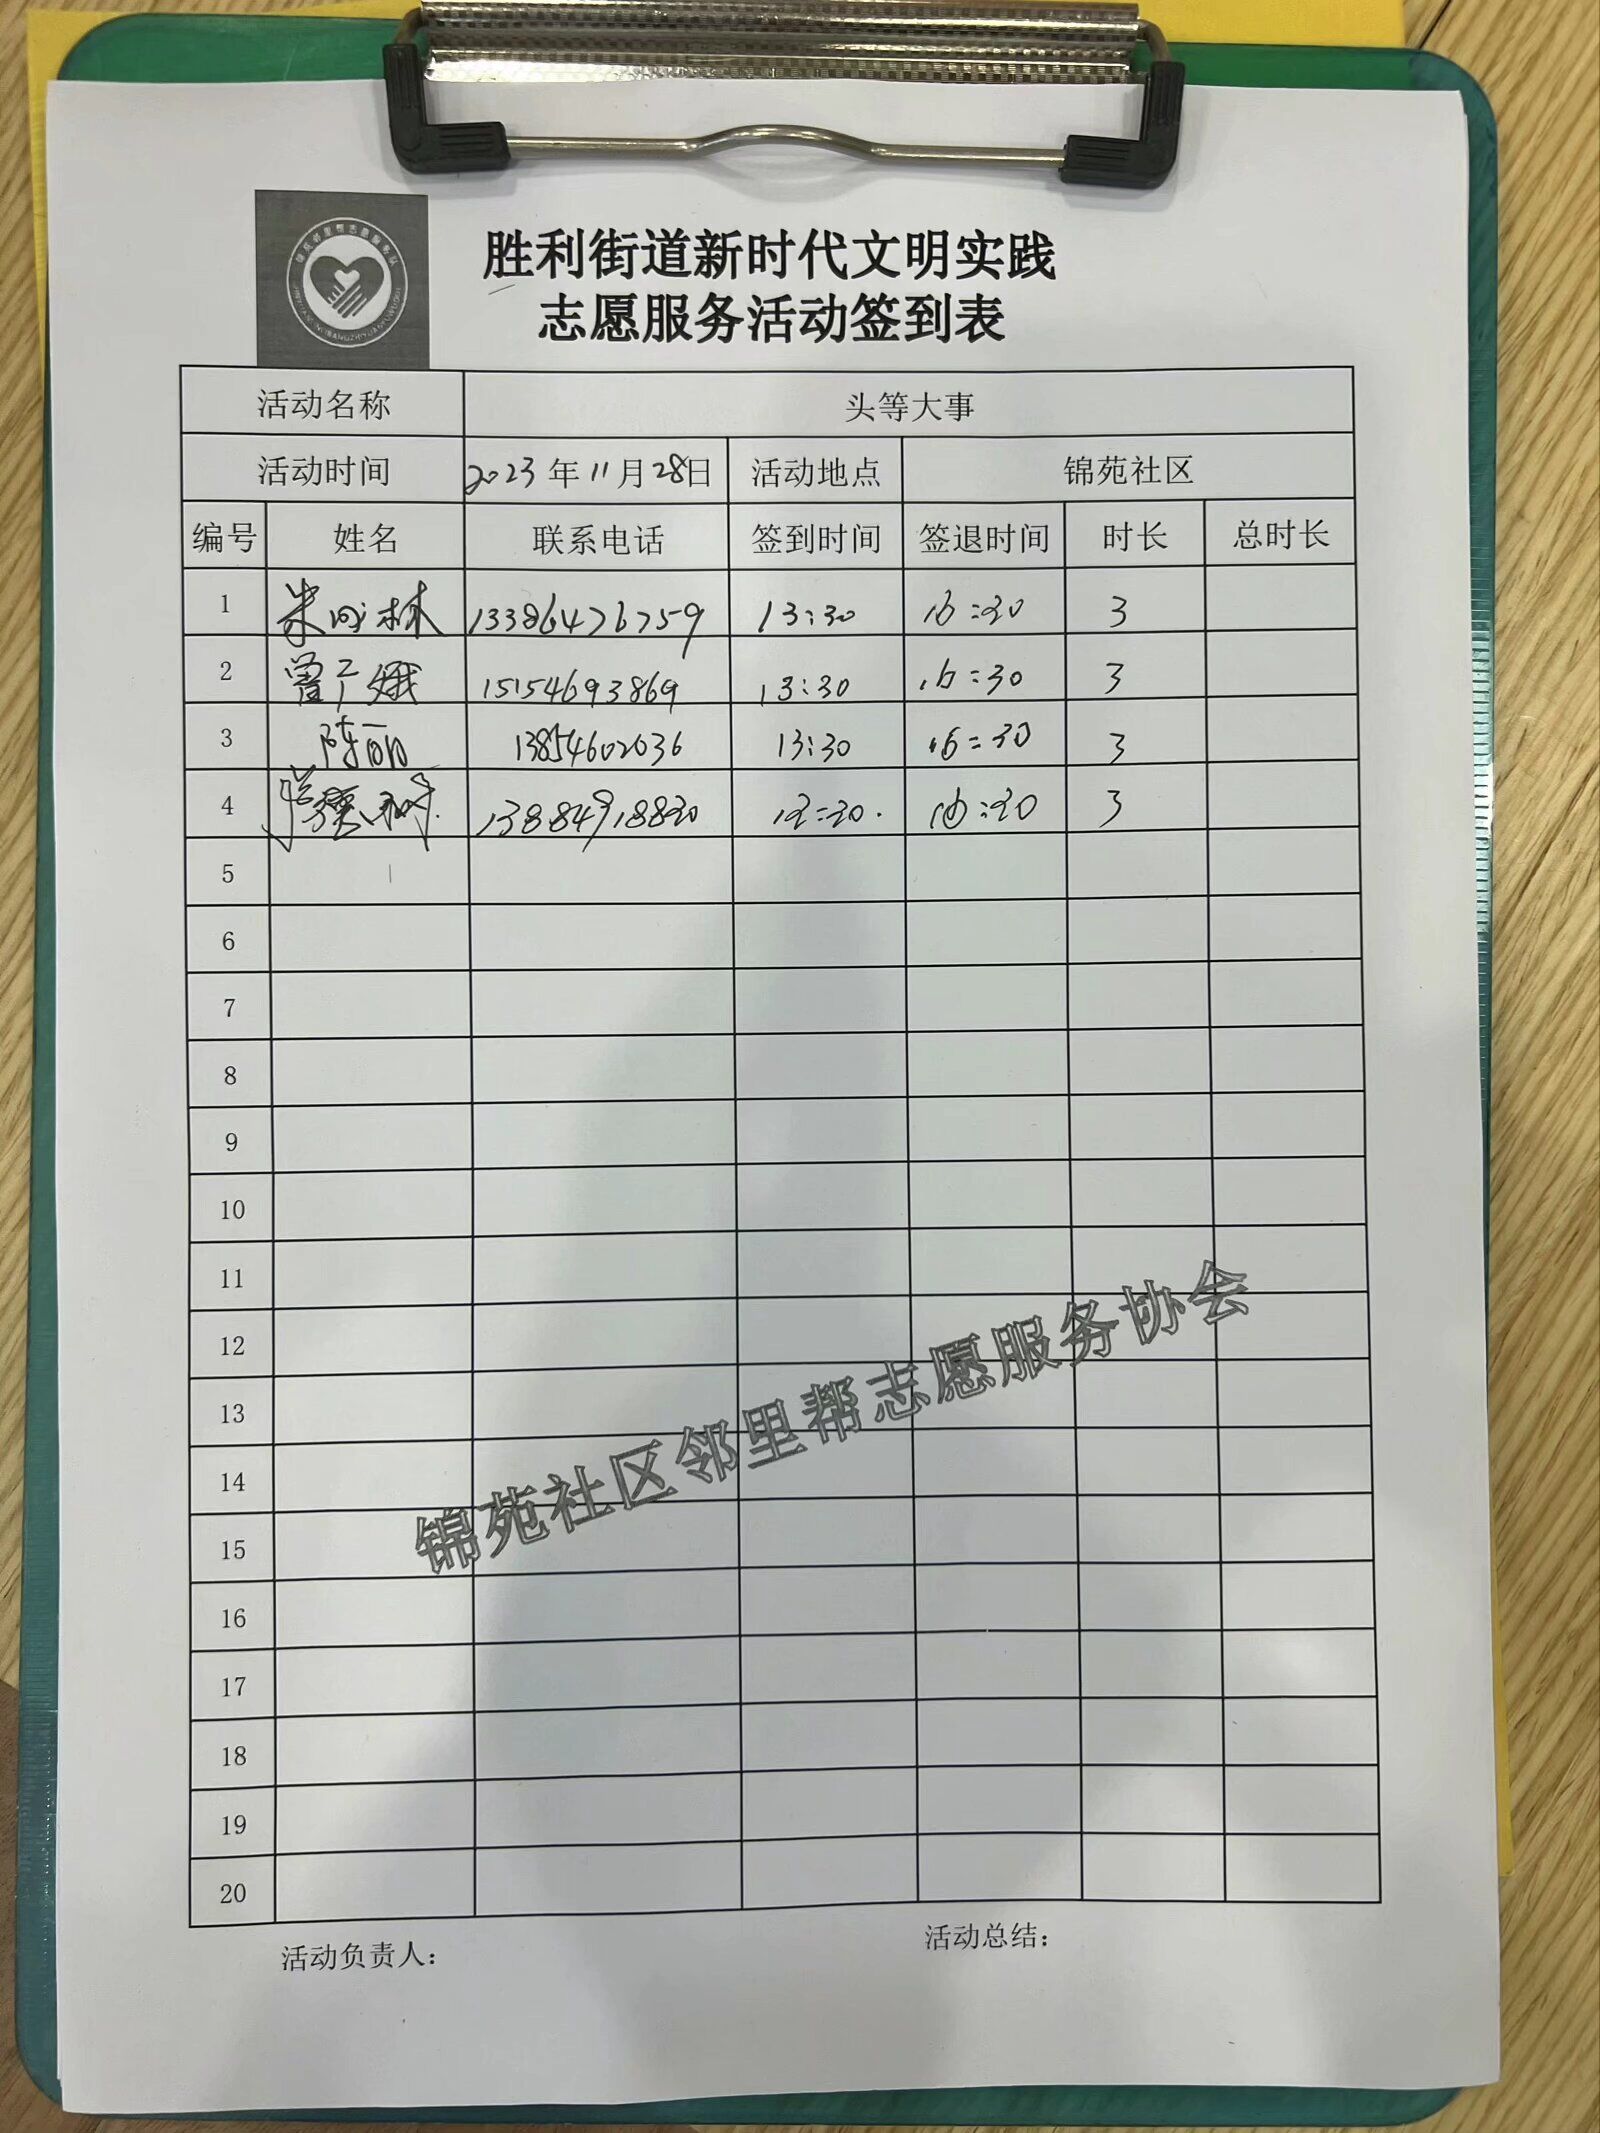 胜利街道新时代文明实践
志愿服务活动签到表
活动名称 头等大事
活动时间 2023年11月28日 活动地点 锦苑社区
编号 姓名 联系电话 签到时间 签退时间 时长 总时长
1 朱 林 13386476759 13:30 16:30 3
2 曾广娥 15154693869 13:30 16:30 3
3 陈丽 13854602636 13:30 16:30 3
4 16:30 3
5
6
7
8
9
10
11
12
13
14
15
16
17
18
19
20
锦苑社区邻里帮志愿服务协会
活动负责人：
活动总结：